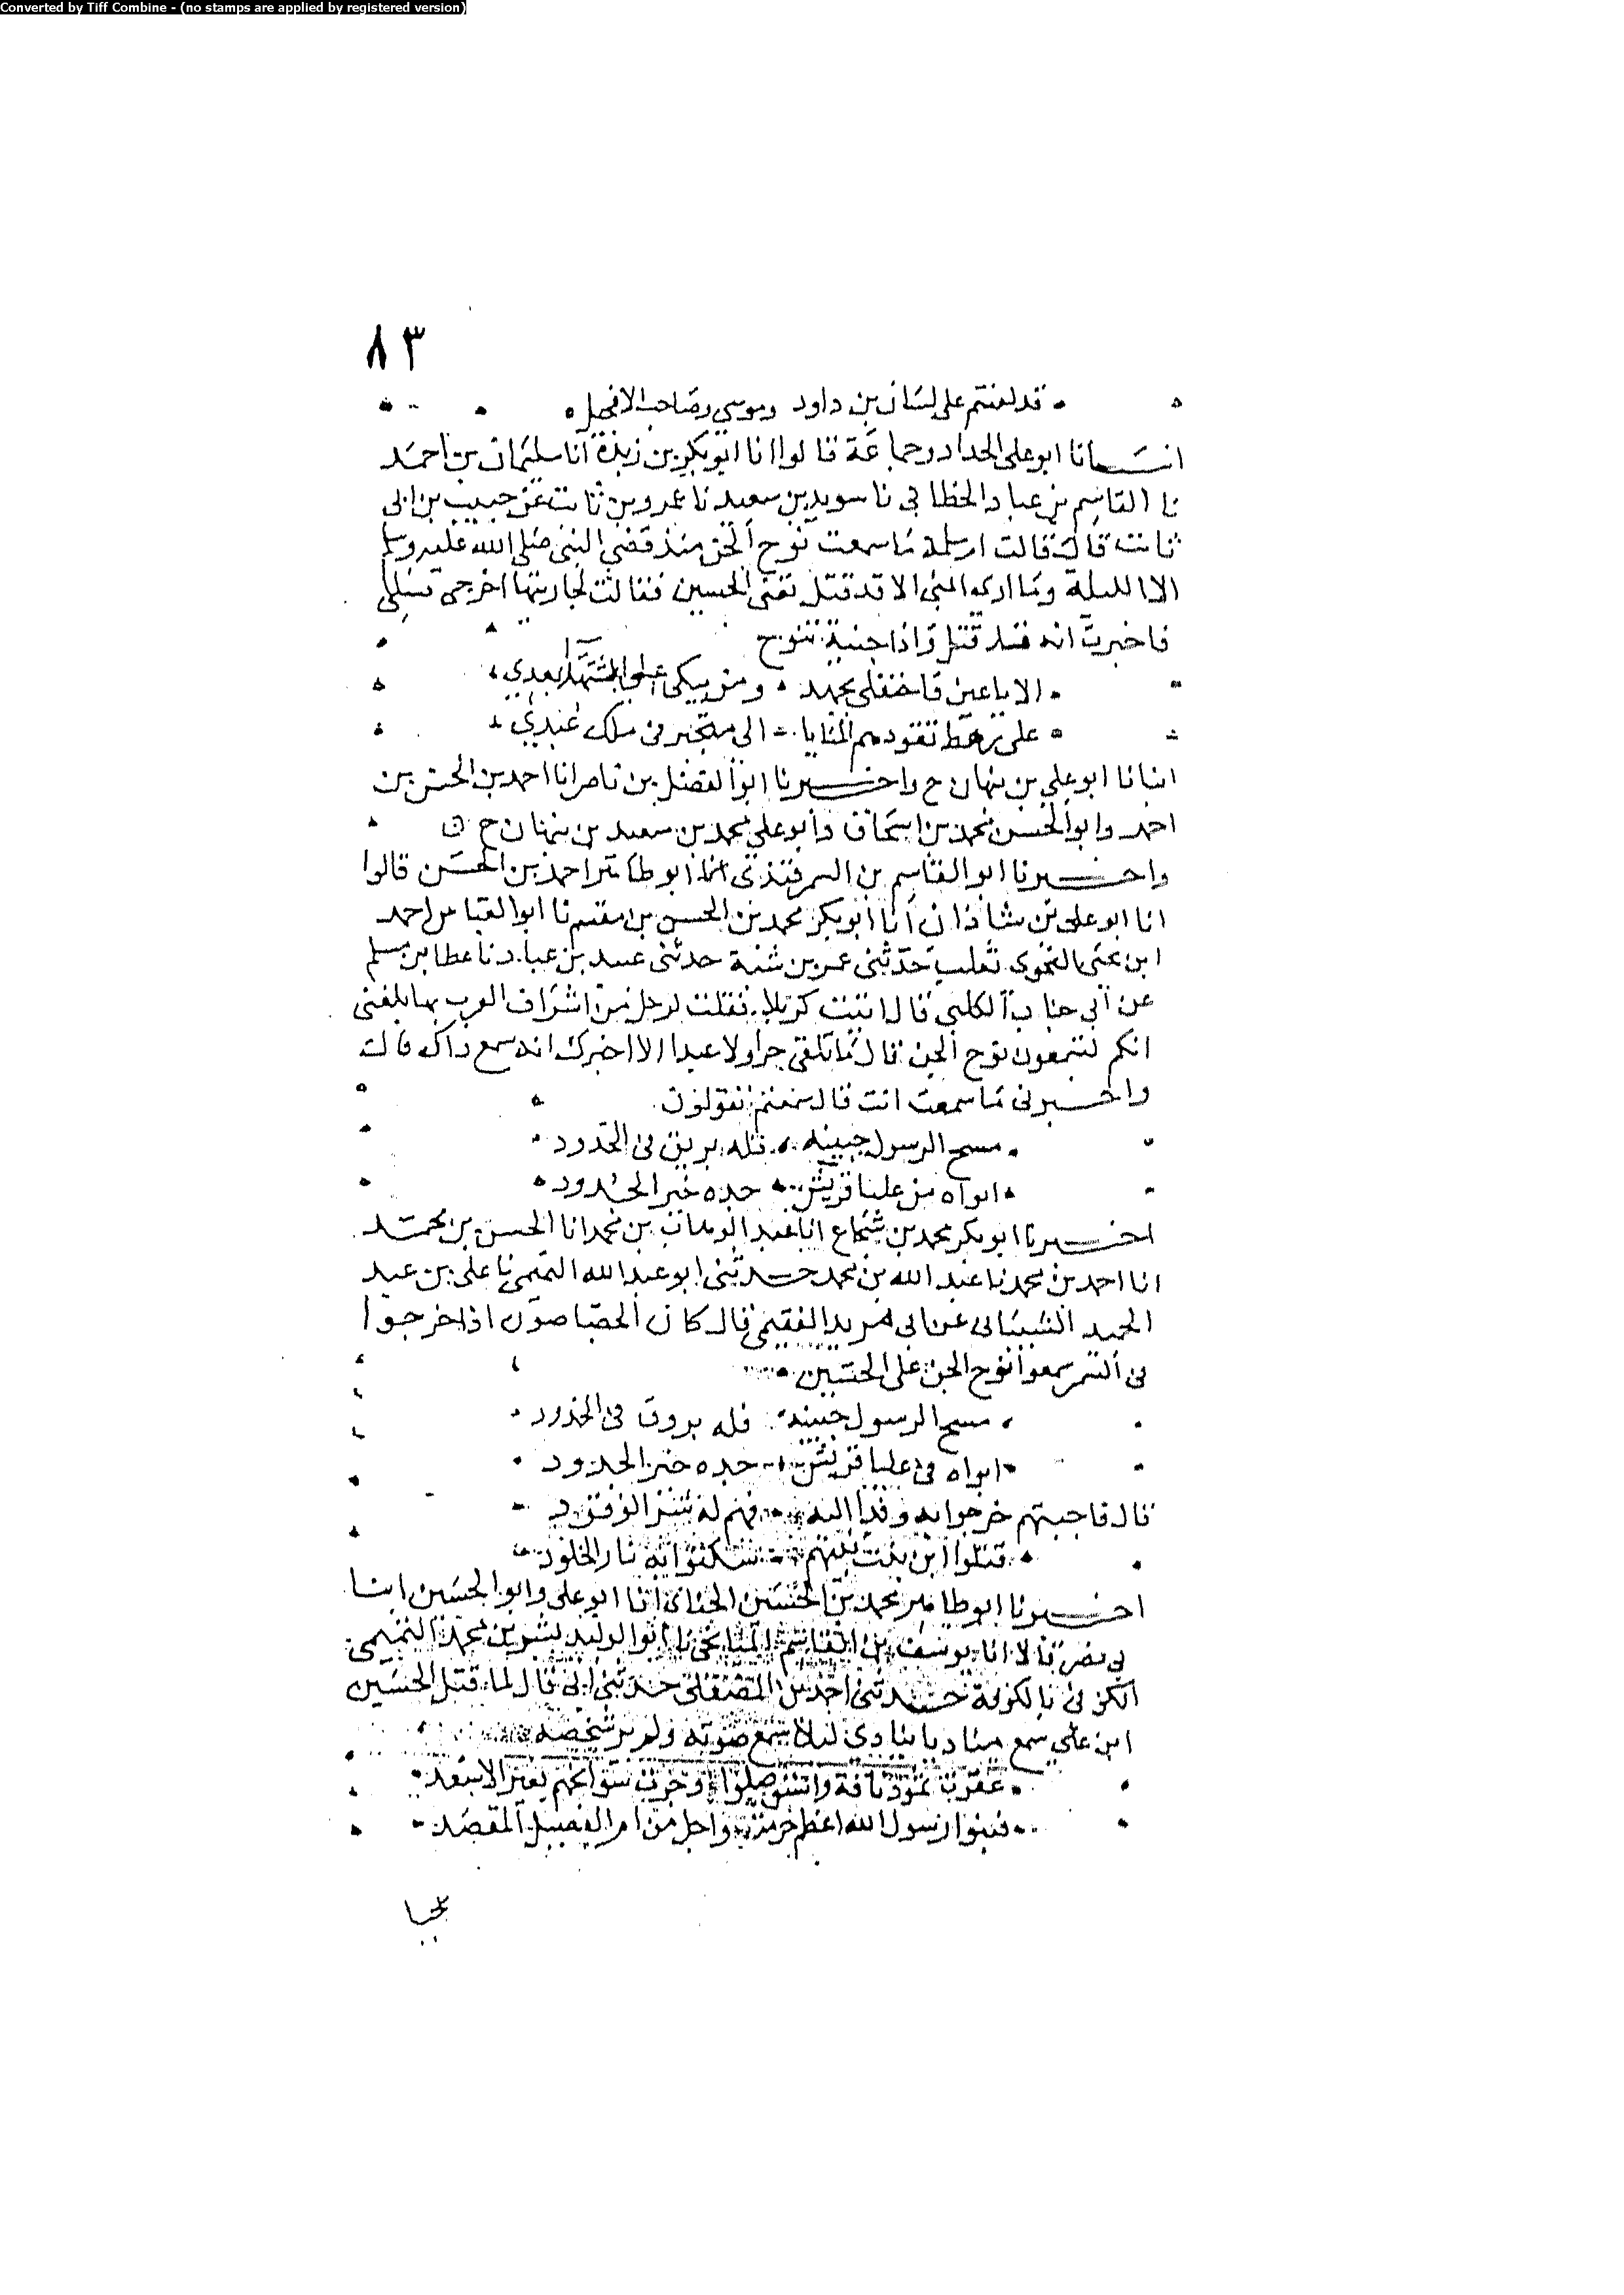 Converted by Tiff Combine - (no stamps are applied by registered version)
٨٣
قد لعنتم على لسان بن داود وموسى وصاحب الانجيل
انبانا ابو على الحداد وجماعة قالوا انا ابو بكر بن زيذة انا سليمان بن احمد
نا القاسم بن عباد الخطابى نا سويد بن سعيد نا عمرو بن ثابت عن حبيب بن ابى
ثابت قال قالت ام سلمة ما سمعت نوح الجن منذ قضى النبى صلى الله عليه وسلم
الا الليلة وما ارى ابنى الا قد قتل تعنى الحسين فقالت لجاريتها اخرجى سلى
فاخبرت انه قد قتل واذا جنية تنوح
الا يا عين فاحتفلى بجهد ومن يبكى على الشهدا بعدى
على رهط تقودهم المنايا الى متجبر فى ملك عبدى
انبانا ابو علي بن نبهان ح واخبرنا ابو الفضل بن ناصر انا احمد بن الحسن بن
احمد وابو الحسن محمد بن اسحاق وابو على محمد بن سعيد بن نبهان ح
واخبرنا ابو القاسم بن السمرقندى انا ابو طاهر احمد بن الحسن قالوا
انا ابو على بن شاذان انا ابو بكر محمد بن الحسن بن مقسم نا ابو العباس احمد
ابن يحيى النحوى ثعلب حدثنى عمر بن شبة حدثنى عبيد بن عباد نا عطا بن مسلم
عن ابى جناب الكلبى قال اتيت كربلا فقلت لرجل من اشراف العرب بها بلغنى
انكم تسمعون نوح الجن قال ما تلقى حرا ولا عبدا الا اخبرك انه سمع ذاك قالت
واخبرنى ما سمعت انت قال سمعتهم يقولون
مسح الرسول جبينه فله بريق فى الخدود
ابواه من عليا قريش جده خير الجدود
اخبرنا ابو بكر محمد بن شجاع انا عبد الوهاب بن محمد انا الحسن بن محمد
انا احمد بن محمد نا عبد الله بن محمد حدثنى ابو عبد الله التميمى نا على بن عبد
الحميد الشيبانى عن ابى مزيد الفقيمى قال كان الجصاصون اذا خرجوا
فى السحر سمعوا نوح الجن على الحسين
مسح الرسول جبينه فله بروق فى الخدود
ابواه فى عليا قريش جده خير الجدود
قال فاجبتهم خرجوا به وفدا اليه فهم له شر الوفود
قتلوا ابن بنت نبيهم سكنوا به نار الخلود
اخبرنا ابو طاهر محمد بن الحسين الحنائى انا ابو على وابو الحسين ابنا
ابى نصر قالا انا يوسف بن القاسم الميانجى نا ابو الوليد بشر بن محمد التميمى
الكوفى بالكوفة حدثنى احمد بن المصقلى حدثنى ابى قال لما قتل الحسين
ابن على سمع مناديا ينادى ليلا يسمع صوته ولم ير شخصه
عقرت ثمود ناقة واستوصلوا وجرت سوانحهم بغير الاسعد
فبنوا رسول الله اعظم حرمة واجل من ام الفصيل المقصد
عجبا